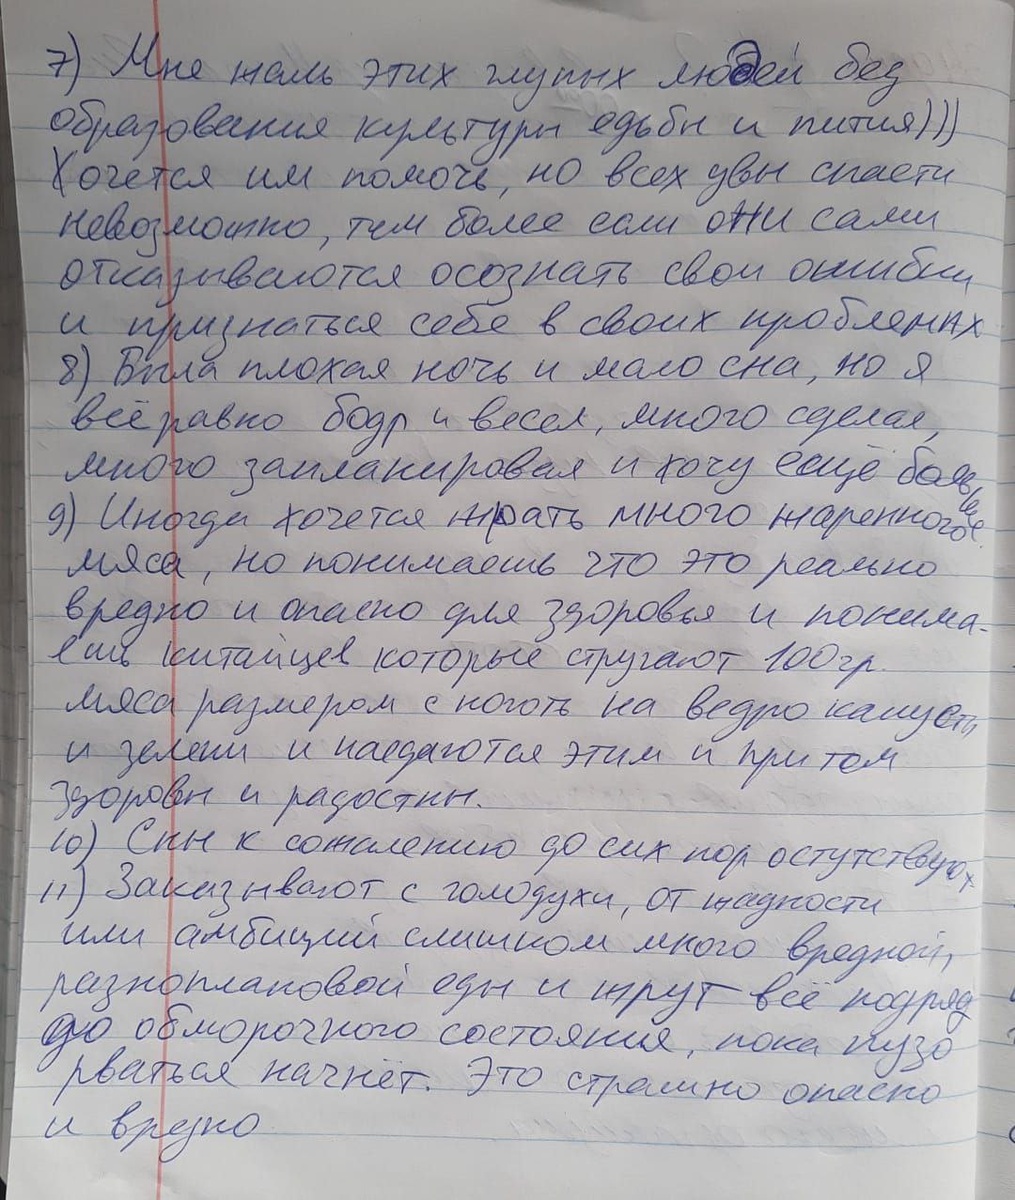 7) Мне жаль этих глупых людей без
образования культуры едьбы и пития)))
Хочется им помочь, но всех увы спасти
невозможно, тем более если они сами
отказываются осознать свои ошибки
и признаться себе в своих проблемах
8) Была плохая ночь и мало сна, но я
всё равно бодр и весел, много сделал,
много запланировал и хочу ещё больше
9) Иногда хочется жрать много жаренного
мяса, но понимаешь что это реально
вредно и опасно для здоровья и понима-
ешь китайцев которые стругают 100гр.
мяса размером с ноготь на ведро капусты
и зелени и наедаются этим и при том
здоровы и радостны.
10) Сны к сожалению до сих пор остутствуют
11) Заказывают с голодухи, от жадности
или амбиций слишком много вредной,
разноплановой еды и жрут всё подряд
до обморочного состояния, пока пузо
рваться начнёт. Это страшно опасно
и вредно